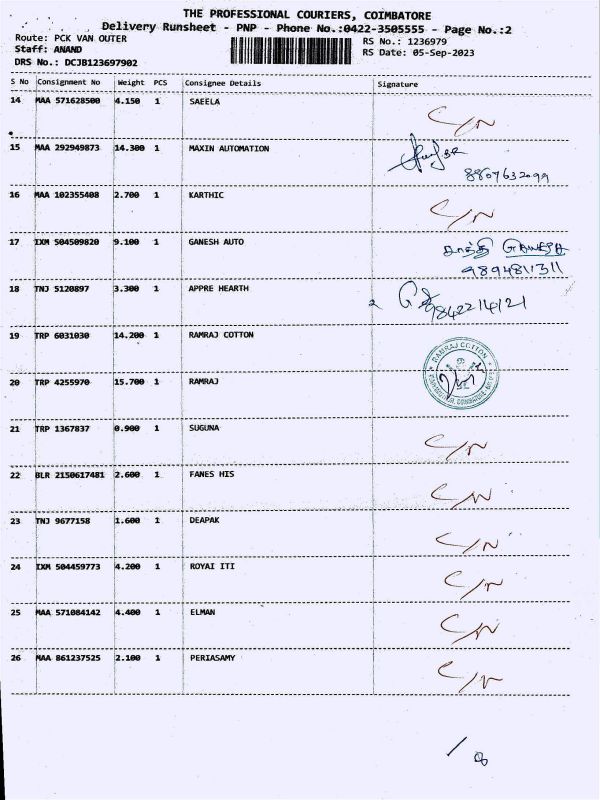 THE PROFESSIONAL COURIERS, COIMBATORE
Delivery Runsheet - PNP - Phone No.:0422-3505555 - Page No.:2
Route: PCK VAN OUTER RS No.: 1236979
Staff: ANAND RS Date: 05-Sep-2023
DRS No.: DCJB123697902
S No Consignment No Weight PCS Consignee Details Signature
14 MAA 571628500 4.150 1 SAEELA C/N
15 MAA 292949873 14.300 1 MAXIN AUTOMATION
8807632099
16 MAA 102355408 2.700 1 KARTHIC C/N
17 IXM 504509820 9.100 1 GANESH AUTO
9894811311
18 TNJ 5120897 3.300 1 APPRE HEARTH
9842214121
19 TRP 6031030 14.200 1 RAMRAJ COTTON
RAMRAJ COTTON
20 TRP 4255970 15.700 1 RAMRAJ
21 TRP 1367837 0.900 1 SUGUNA C/N
22 BLR 2150617481 2.600 1 FANES HIS C/N
23 TNJ 9677158 1.600 1 DEAPAK C/N
24 IXM 504459773 4.200 1 ROYAI ITI C/N
25 MAA 571084142 4.400 1 ELMAN C/N
26 MAA 861237525 2.100 1 PERIASAMY C/N